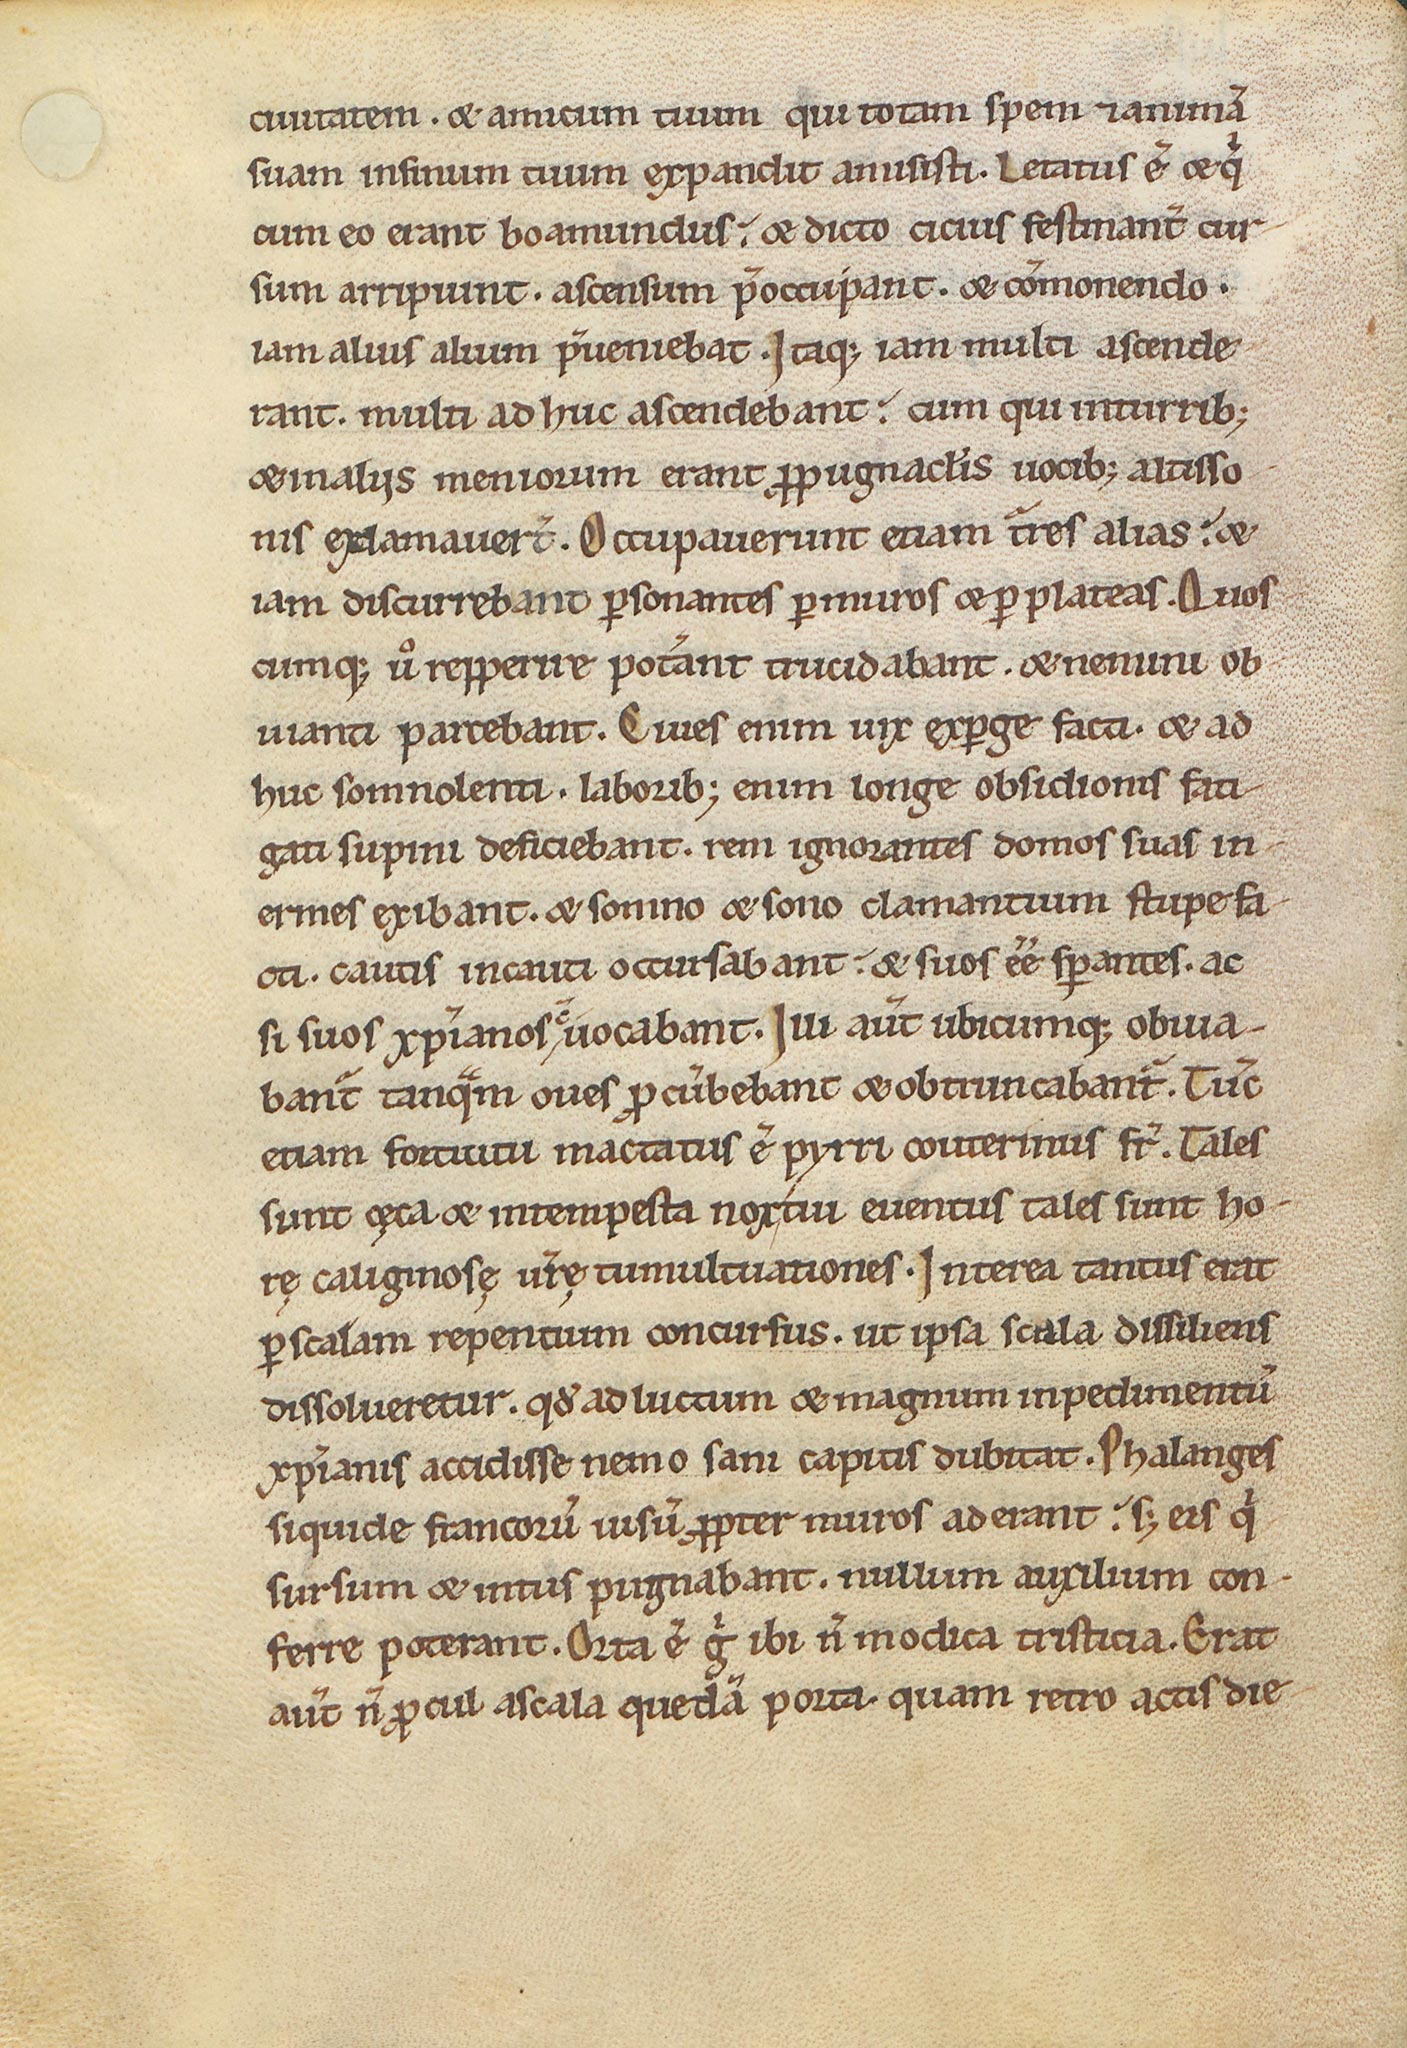 ciuitatem . & amicum tuum qui totam spem ⁊ animā
suam insinum tuum expandit amisisti . Letatus ē & qͥ
cum eo erant boamundus ⹎ & dicto cicius festinant̄ cur-
sum arripiunt . ascensum p̄occupant . & cōmonendo .
iam alius alium p̄ueniebat . Itaq; iam multi ascende-
rant . multi ad huc ascendebant ⹎ cum qui inturrib;
& inalijs meniorum erant ꝓpugnacl̄is uocib; altisso-
nis exclamauer̄t . Occupauerunt etiam t̄res alias ⹎ &
iam discurrebant ꝑsonantes ꝑ muros & ꝑ plateas . Quos
cumq; ů repperire pot̄ant trucidabant . & nemini ob
uianti parcebant . Ciues enim uix exꝑge facti . & ad
huc somnolenti . laborib; enim longe obsidionis fati-
gati supini deficiebant . rem ignorantes domos suas in-
ermes exibant . & somno & sono clamantium stupefa-
cti . cautis incauti occursabant ⹎ & suos ēē sꝑantes . ac
si suos xp̄ianos ͨ̄uocabant . Illi aūt ubicumq; obuia-
bant̄ tanqᷓm oues ꝓcūbebant & obtruncabant̄ . Tūc
etiam fortuitu mactatus ē pyrri couterinus fr̄ . Tales
sunt cęca & intempesta noxtiui euentus tales sunt ho-
rę caliginosę ur̄ę tumultuationes . Interea tantus erat
ꝑ scalam repentium concursus . ut ipsa scala dissiliens
dissolueretur . qđ ad luctum & magnum inpedimentū
xp̄ianis accidisse nemo sani capitis dubitat . Phalanges
siquide francorū iusū ꝓpter muros aderant ⹎ s; eis qͥ
sursum & intus pugnabant . nullum auxilium con-
ferre poterant . Orta ē gͥ ibi n̄ modica tristicia . Erat
aūt n̄ ꝓcul ascala quedā porta . quam retro actis die-